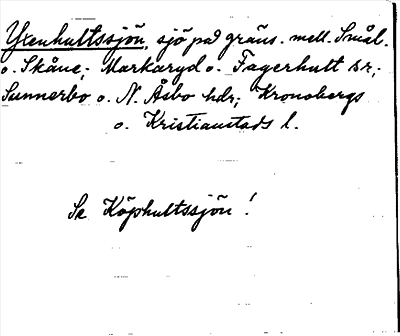 Yxenhultssjön, sjö på gräns. mell. Smål.
o. Skåne; Markaryd o. Fagerhult sr;
Sunnerbo o. N. Åsbo hdr; Kronobergs
o. Kristianstads l.
Se Köphultssjön!